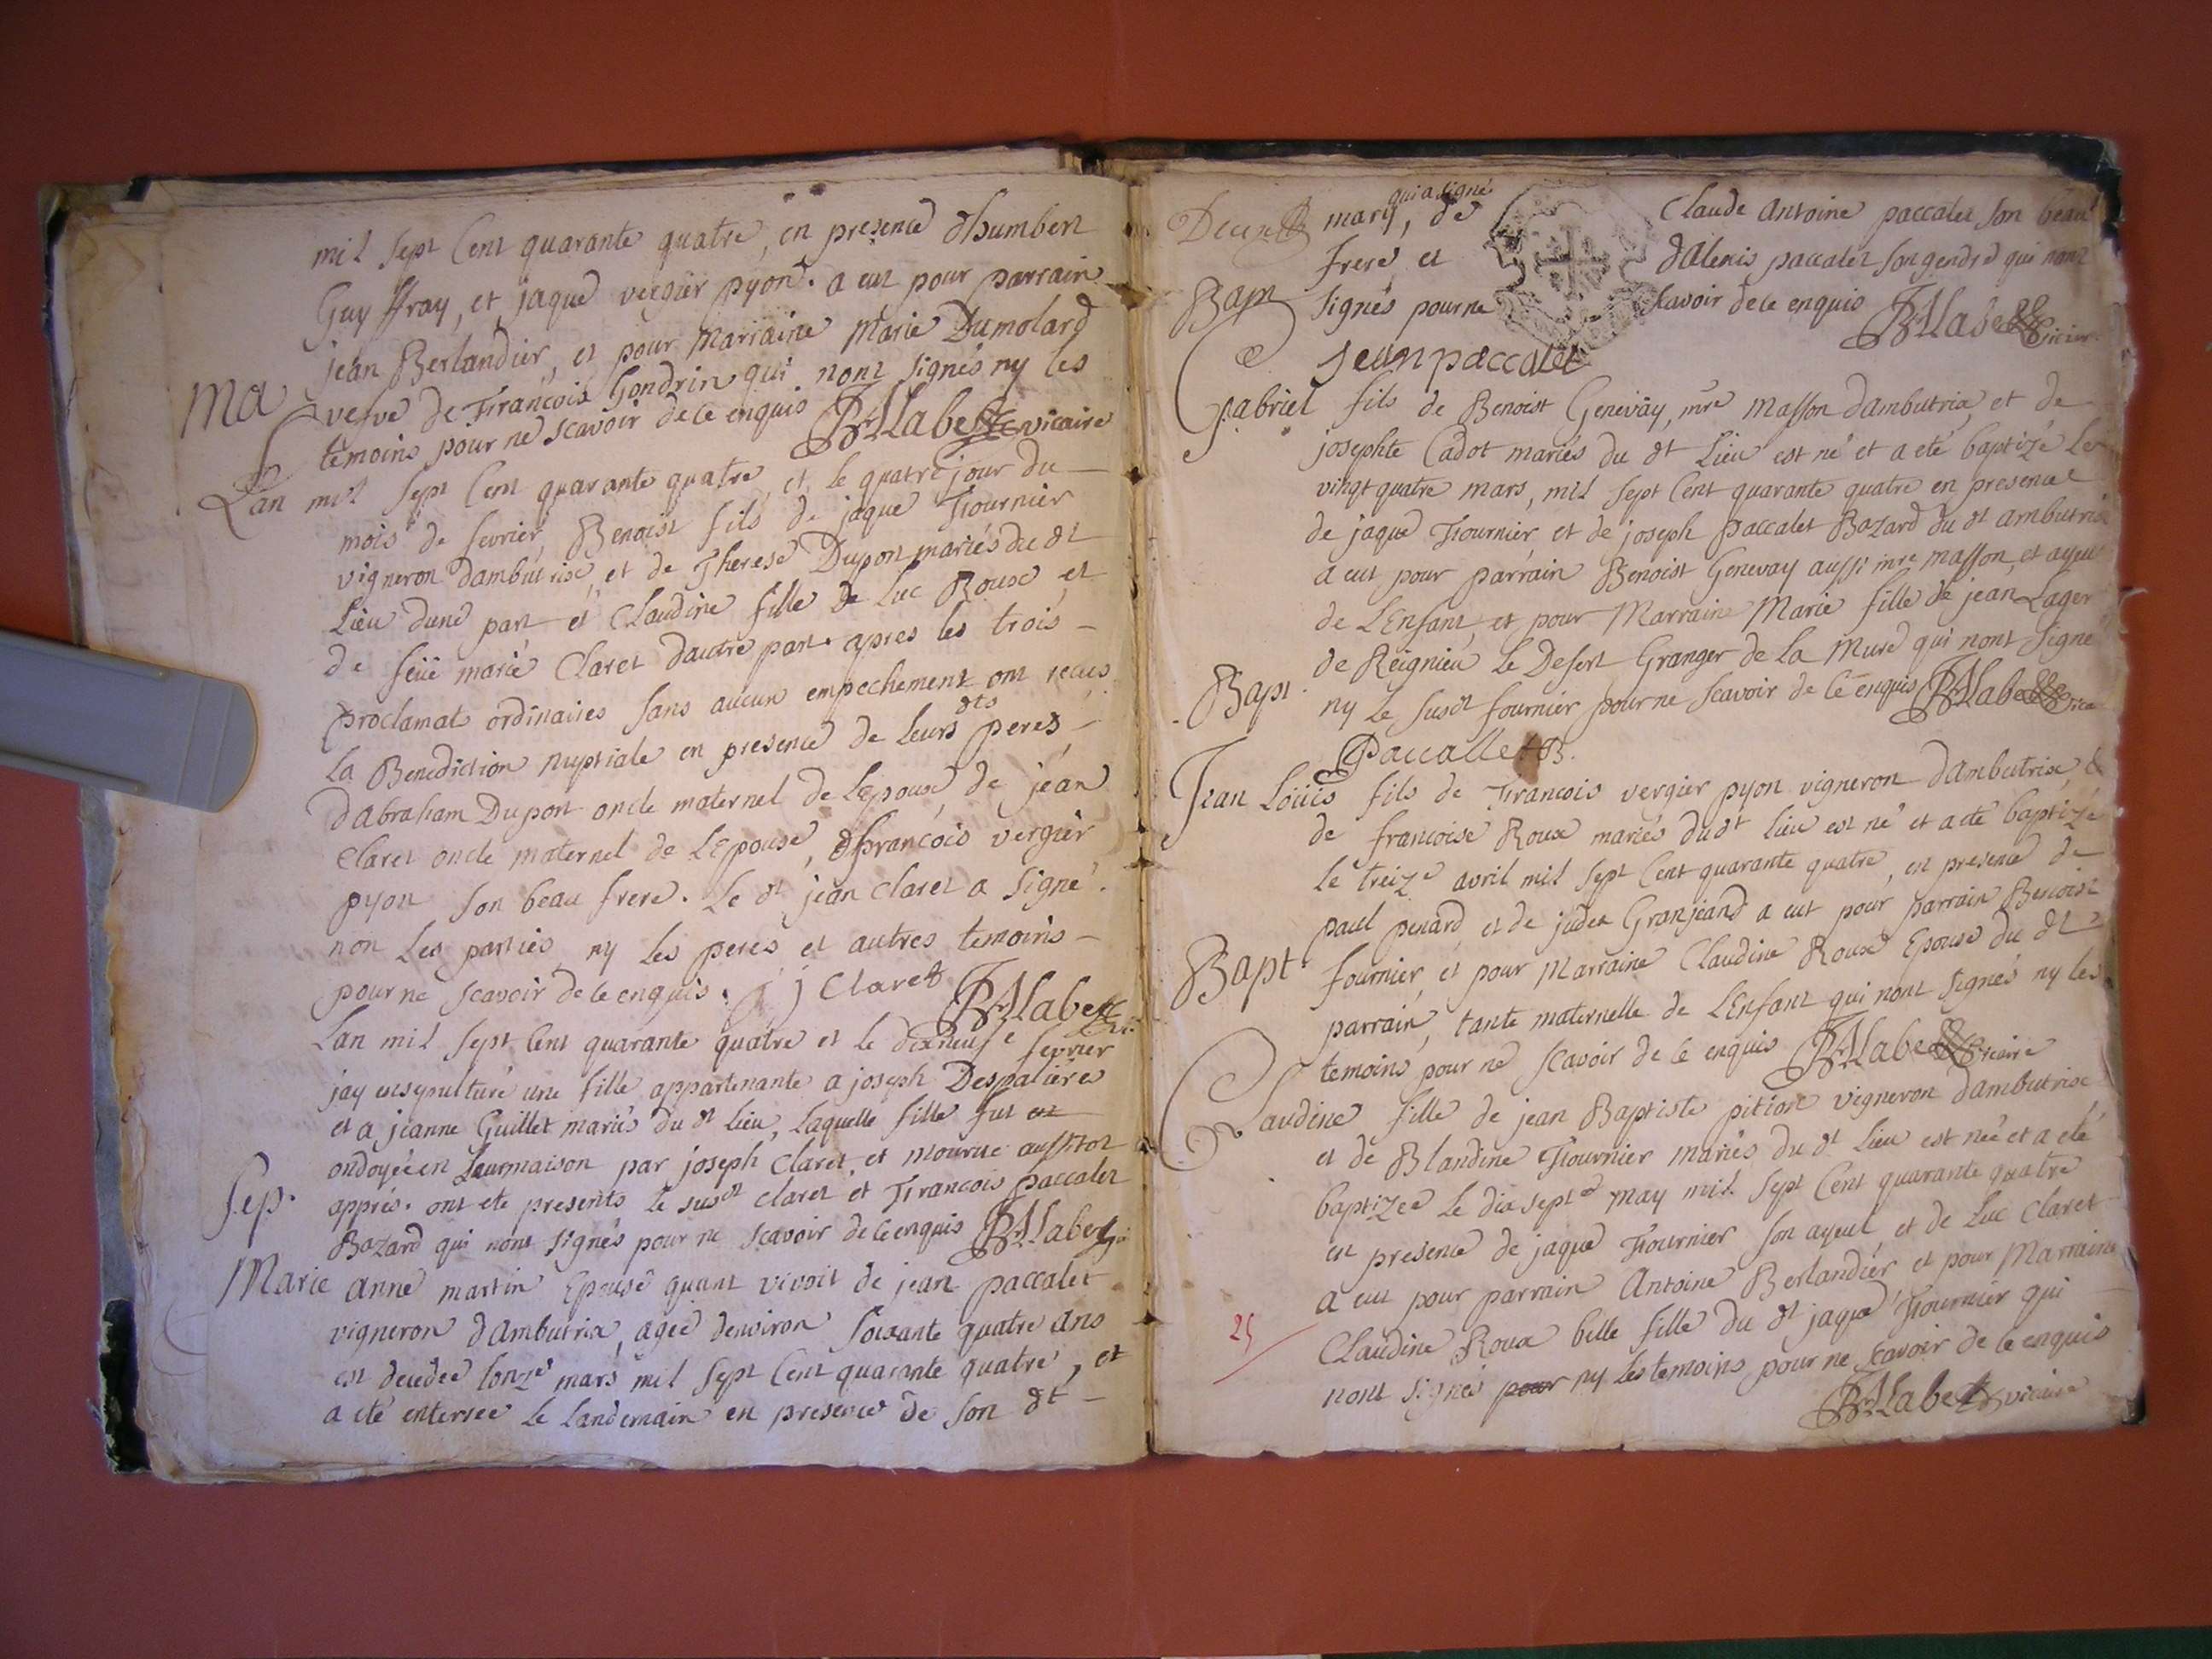 mil sept Cent quarante quatre, en presence dhumbert
Guy ffray, et jaque vergier pyon. a eut pour parrain
jean Berlandier, et pour Marraine Marie Dumolard
Ma
vefve de Francois Gondrin qui nont signés ny les
temoins pour ne scavoir de ce enquis. Vicaire
Lan mil sept Cent quarante quatre, et le quatre jour du
mois de fevrier Benoist fils de jaque Fournier
vigneron dambutrix, et de Therese Dupont mariés du dt
Lieu dune part et Claudine fille de Luc Roux, et
de feüe marie Claret dautre part. apres les trois
proclamats ordinaires sans aucun empechement ont recus
la Benediction nuptiale en presence de leurs dts peres
dabraham Dupont oncle maternel de Lepoux, de jean
Claret oncle maternel de LEpouse, & françois vergier
pyon son beau frere. Le dt jean claret a signé.
non les parties ny les peres et autres temoins
pour ne scavoir de ce enquis. j Claret
Lan mil sept Cent quarante quatre et le dixneufe fevrier
jay ensepulturé une fille appartenante a joseph Despalieres
et a jeanne Guillet mariés du dt Lieu, laquelle fille fut en
ondoyée en Leur maison par joseph claret, et mourut aussitot
Sep.
apprés. ont ete presents le susdt claret et Francois paccalet
Bozard qui nont signés pour ne scavoir de ce enquis
Marie anne martin Epouse quant vivoit de jean paccalet
vigneron dambutrix, agée denviron soixante quatre ans
est decedée lonze mars mil sept Cent quarante quatre, et
a eté enterrée le landemain en presence de son dt
qui a signé
mary, de Claude Antoine paccalet son beau
frere et dAlexis paccalet son gendre qui nont
Bapt
signés pour ne scavoir de ce enquis
jean paccalet
Gabriel fils de Benoist Genevay, mre masson dambutrix, et de
josephte Cadot mariés du dt Lieu est né et a eté baptizé le
vingt quatre mars, mil sept Cent quarante quatre en presence
de jaque Fournier et de joseph paccalet Bozard du dt ambutrix
a eut pour parrain Benoist Genevay aussi mre masson, et ayeul
de LEnfant, et pour Marraine Marie fille de jean Lager
de Reignieu le Desert Granger de la Mure qui nont signé
Bapt.
ny le susdt fournier pour ne scavoir de ce enquis
Paccallet B.
Jean Loüis fils de Francois vergier pyon vigneron dambutrix, &
de francoise Roux mariés du dt Lieu est né et a eté baptizé
le treize avril mil sept Cent quarante quatre, en presence de
paul penard et de judea Granjeand a eut pour parrain Benoist
Bapt.
fournier, et pour Marraine Claudine Roux Epouse du dt
parrain, tante maternelle de LEnfant qui nont signés ny les
temoins pour ne scavoir de ce enquis Vicaire
Claudine fille de jean Baptiste pition vigneron dambutrix
et de Blandine Fournier mariés du dt Lieu est née et a eté
baptizée le dix septe may mil sept Cent quarante quatre
en presence de jaque Fournier son ayeul, et de Luc Claret
a eut pour parrain Antoine Berlandier et pour Marraine
25
Claudine Roux belle fille du dt jaque Fournier qui
nont signés pour ny les temoins pour ne scavoir de ce enquis
vicaire